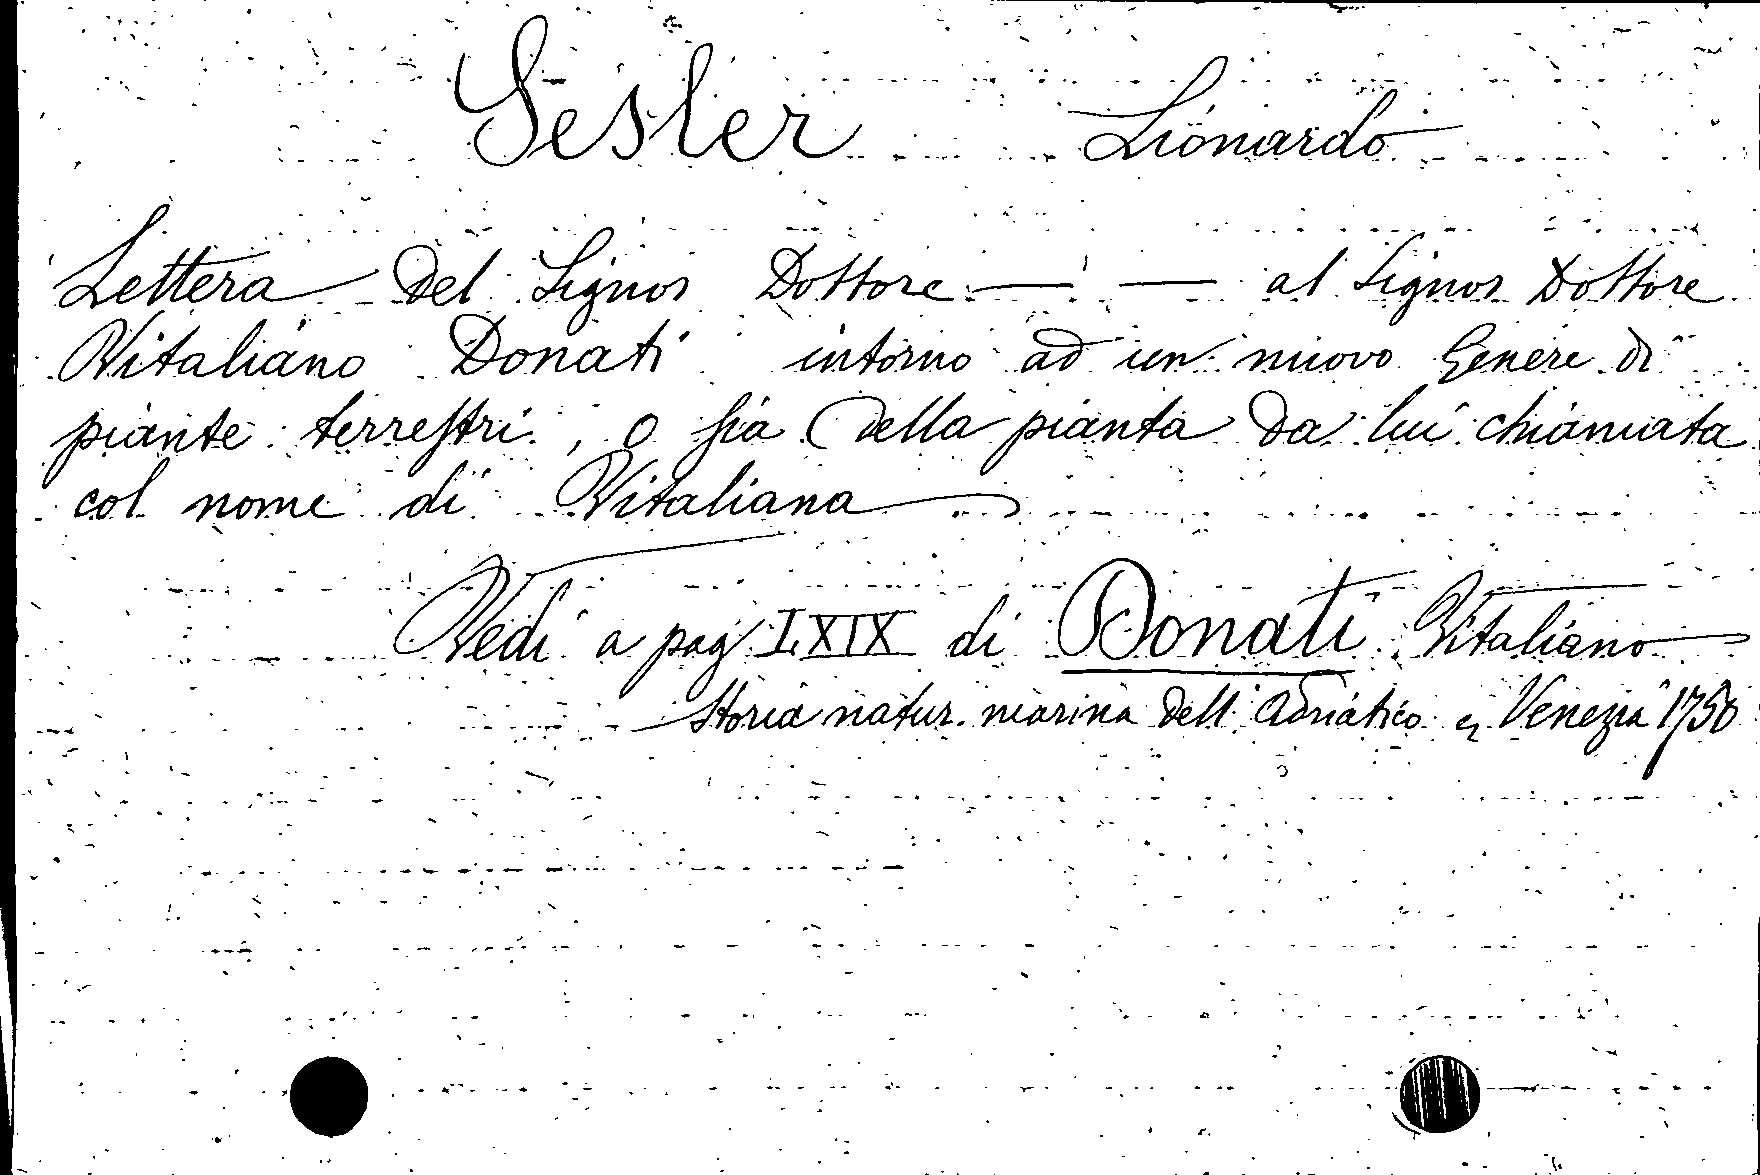 Sesler Lionardo
Lettera del Signor Dottore — — al Signor Dottore
Vitaliano Donati intorno ad un nuovo Genere di
piante terreſtri, o ſia della pianta da lui chiamata
col nome di Vitaliana
Vedi a pag LXIX di Donati Vitaliano
Storia natur. marina dell' Adriatico Venezia 1750